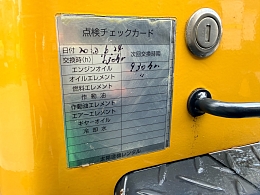 点検チェックカード
日付 2013.6.24 次回交換時期
交換時(h) 430hr
エンジンオイル 930hr
オイルエレメント 〃
燃料エレメント
作動油
作動油エレメント
エアーエレメント
ギヤーオイル
冷却水